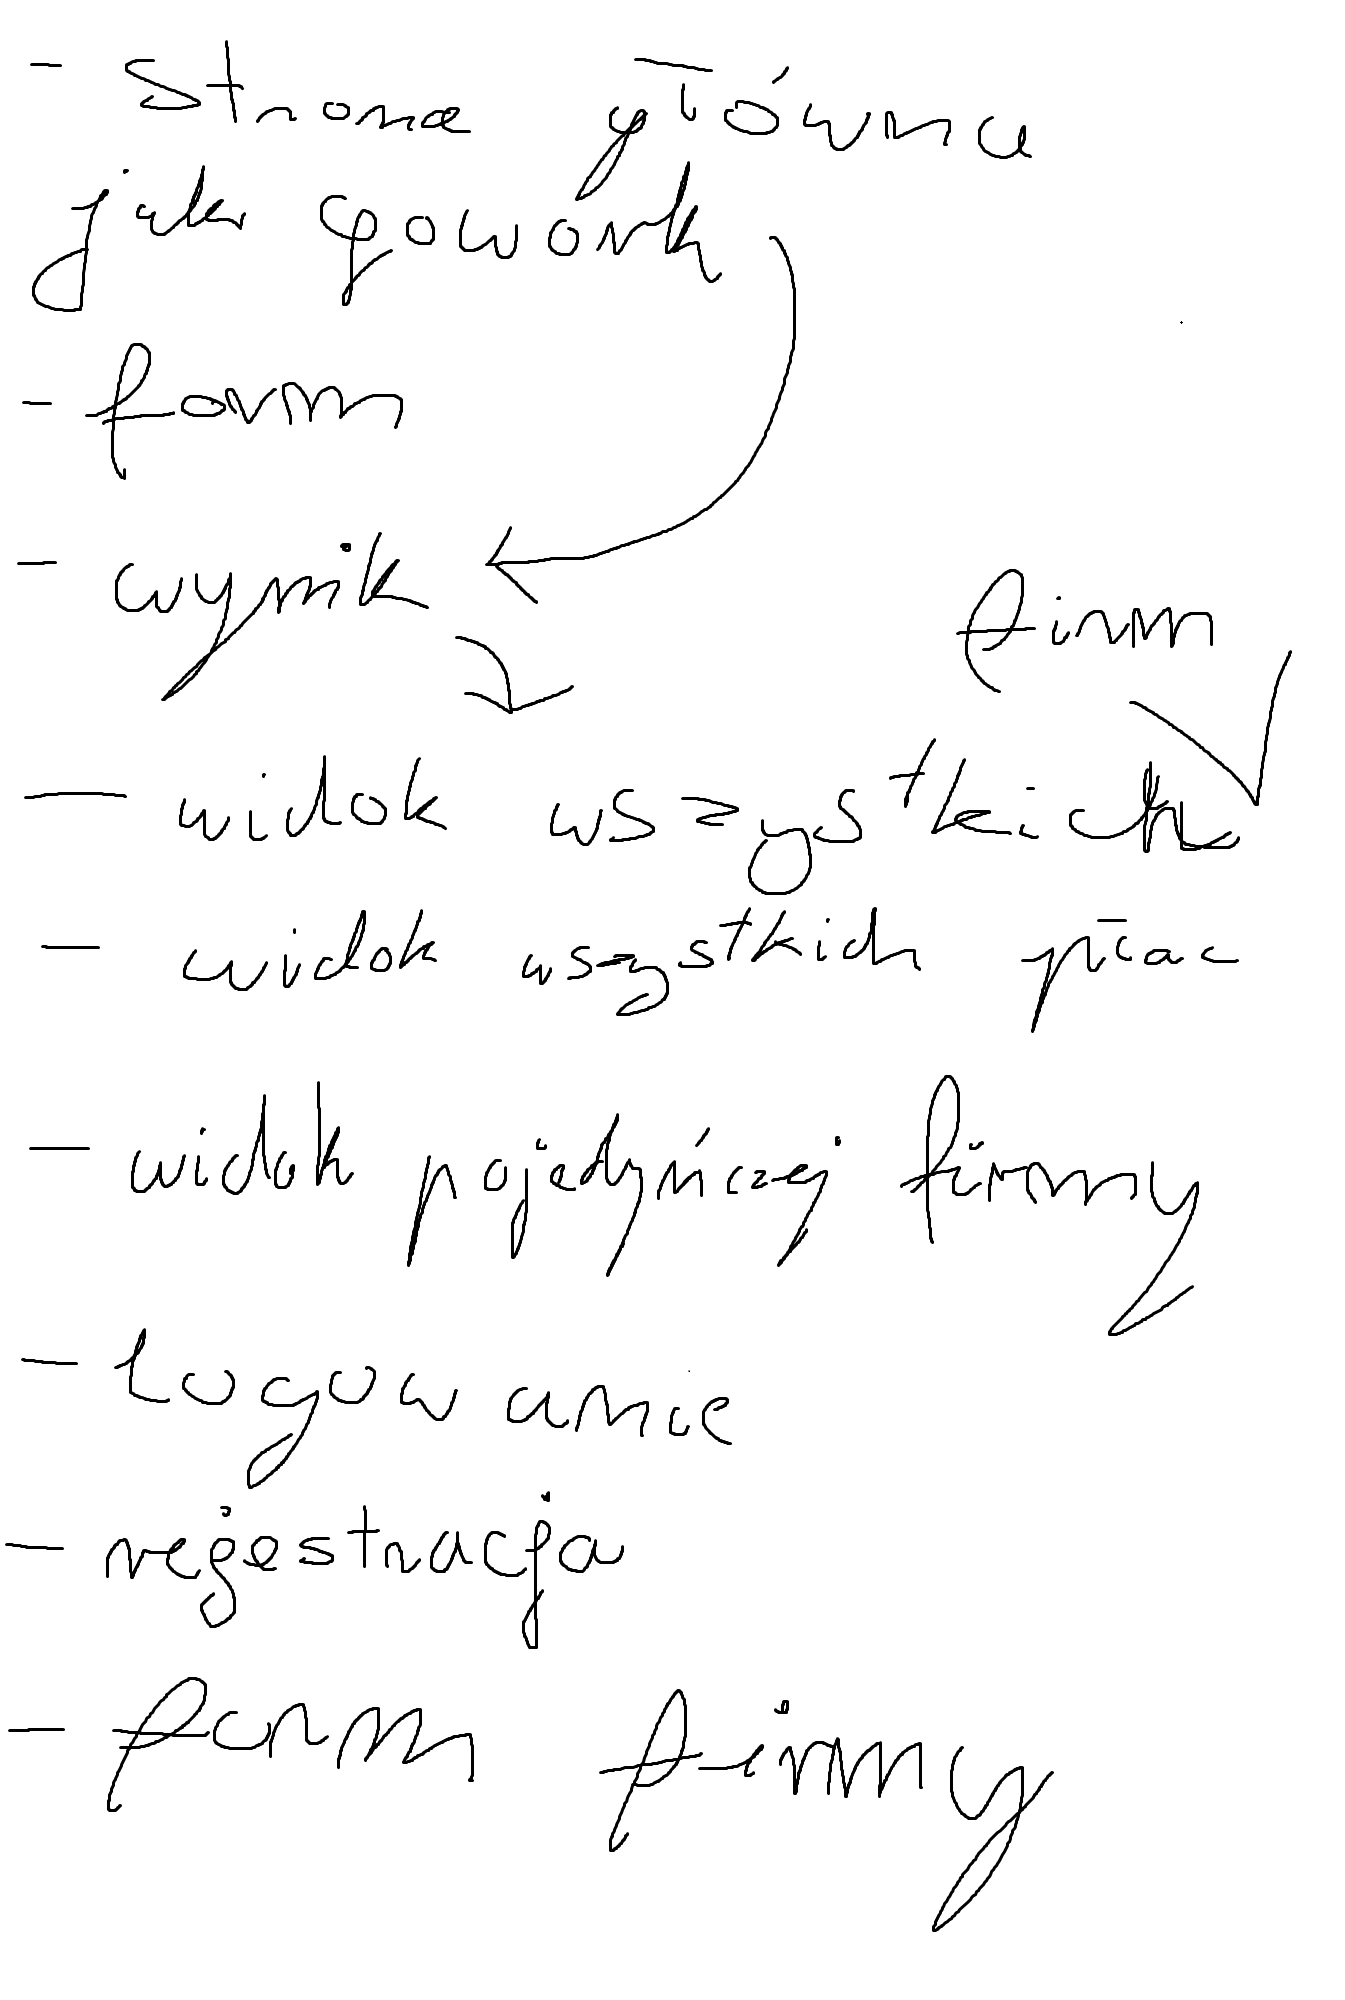 - strona główna
jak gowork
- form
- wynik
firm
- widok wszystkich
- widok wszystkich płac
- widok pojedyńczej firmy
- logowanie
- regestracja
- form firmy